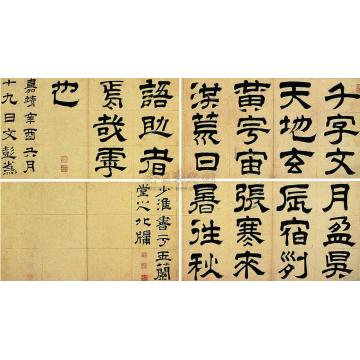 千字文
天地玄
黃宇宙
洪荒日
月盈昃
辰宿列
張寒來
暑往秋
語助者
焉哉乎
也
嘉靖辛酉五月
十九日文彭為
少淮書于玉蘭
堂之北牖